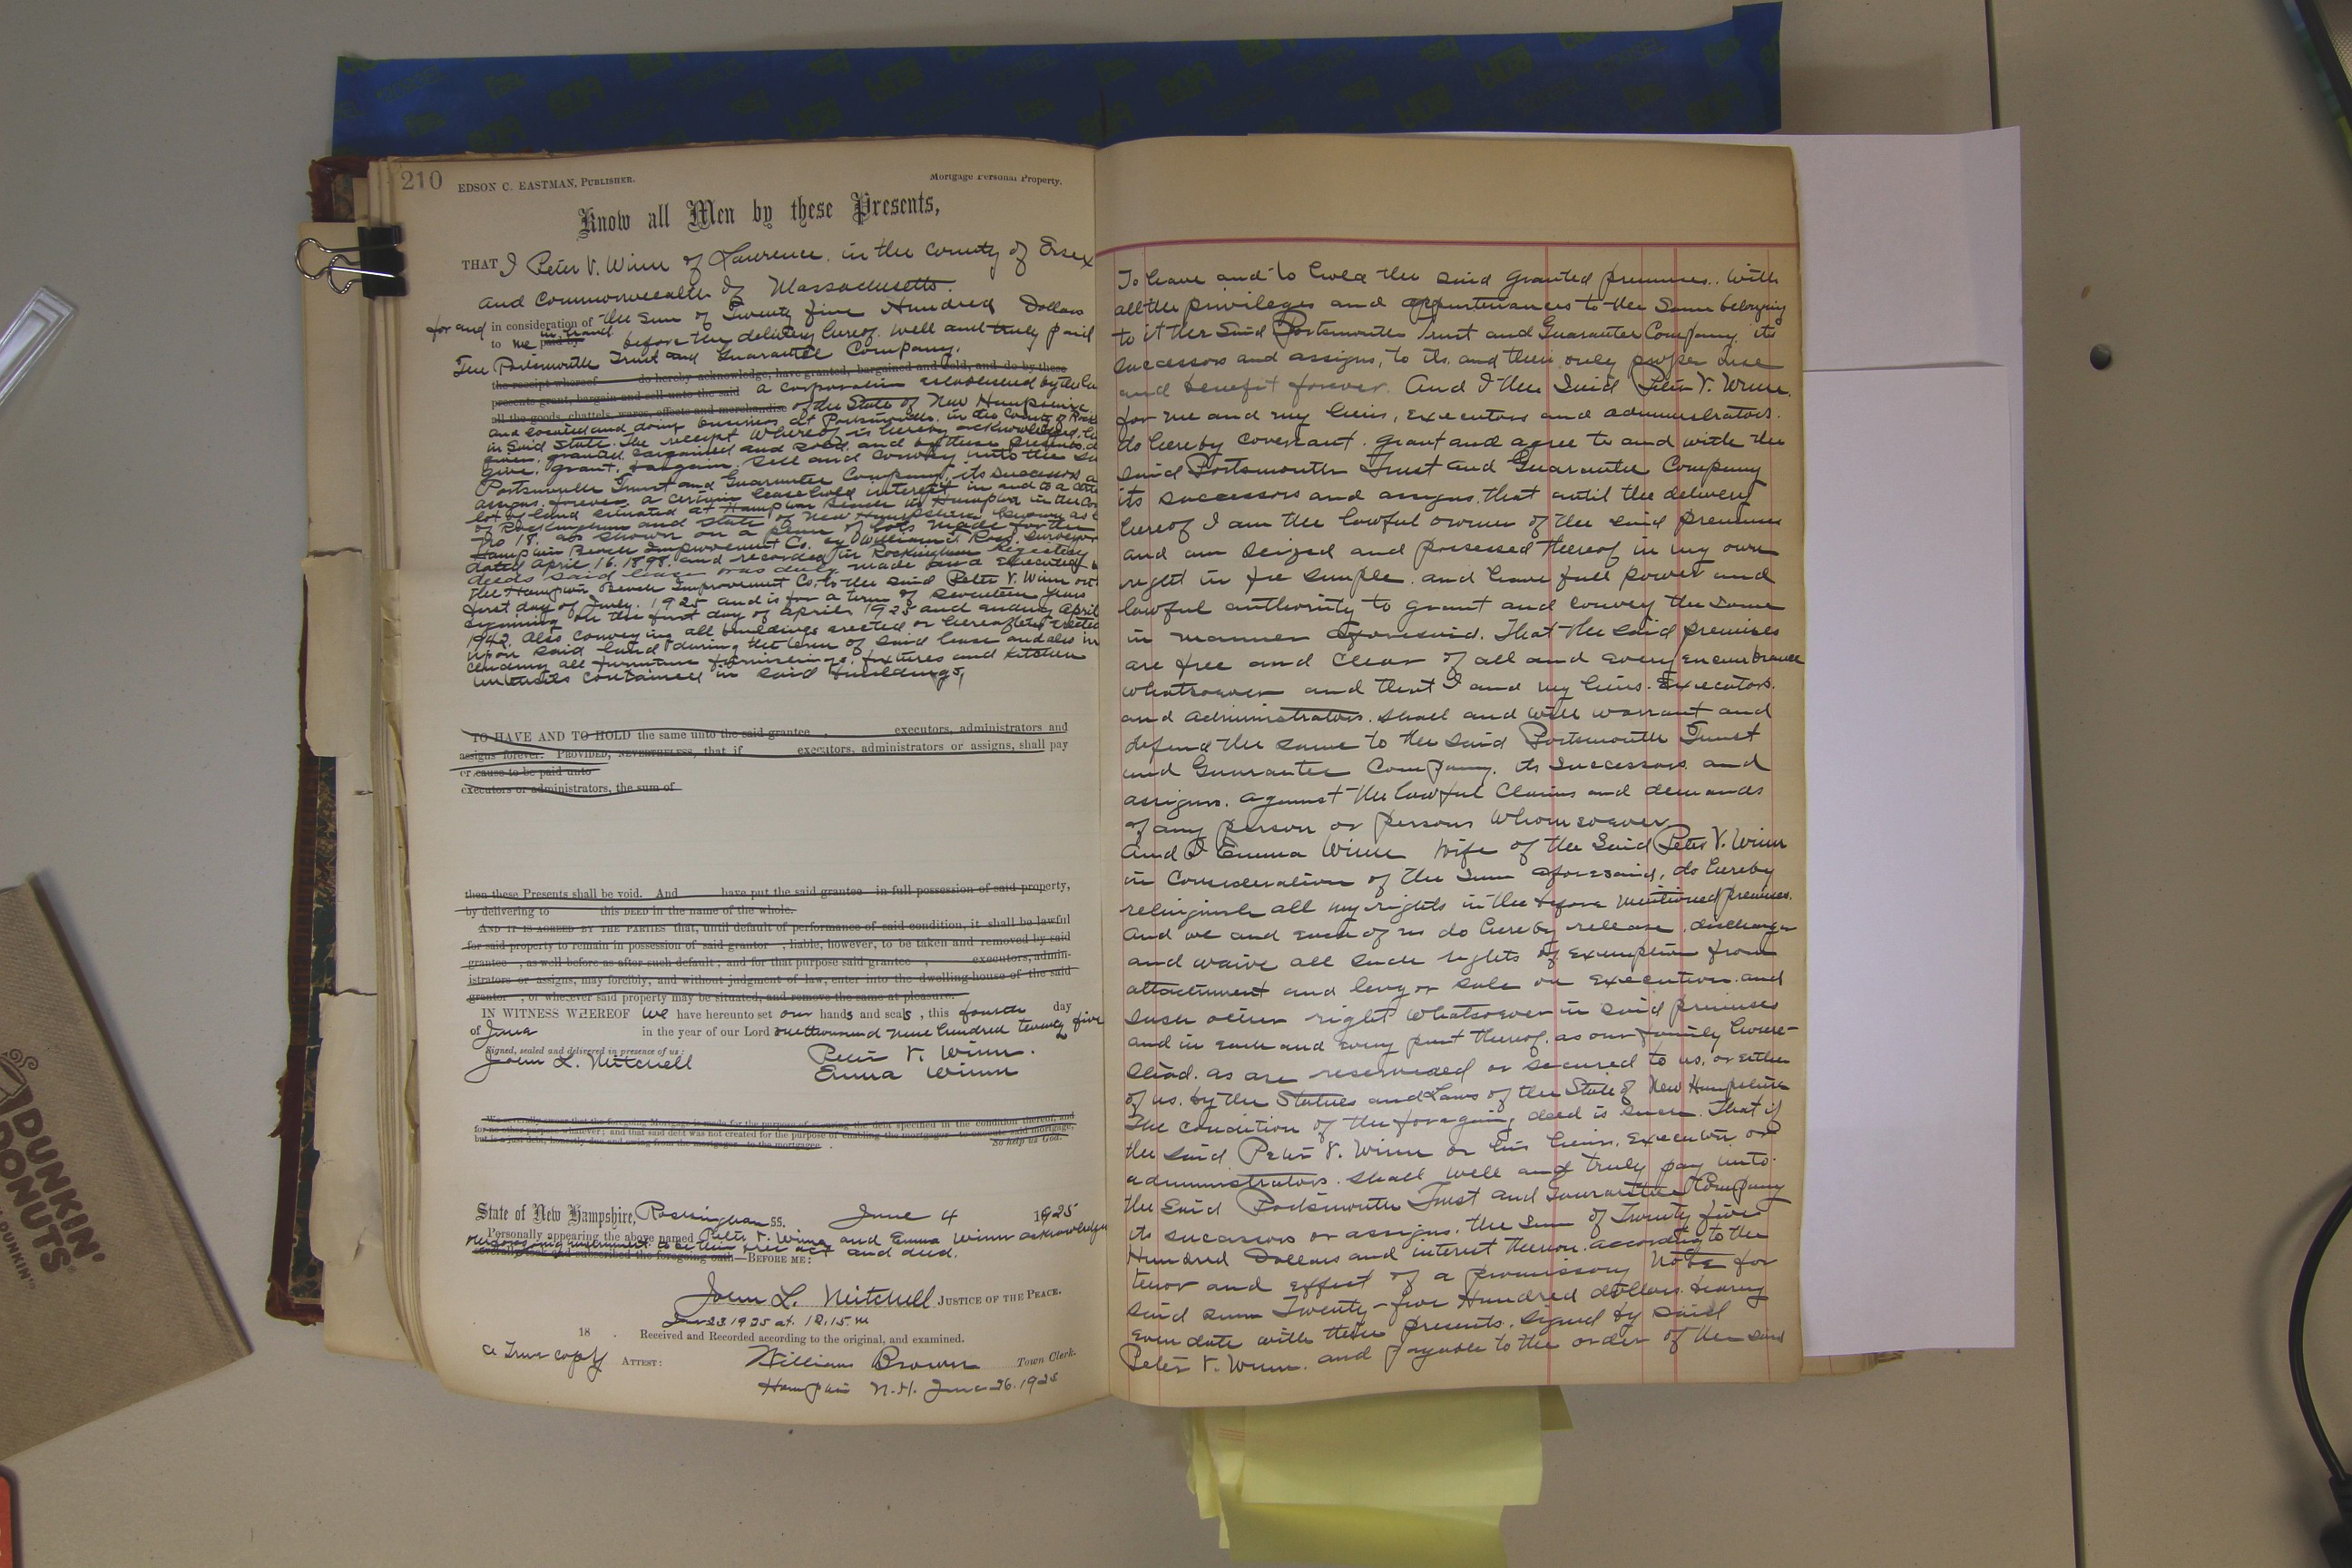 210 EDSON C. EASTMAN, PUBLISHER. Mortgage Personal Property.
Know all Men by these Presents,
THAT I Peter V. Winn of Lawrence. in the County of Essex
and Commonwealth of Massachusetts.
for and in consideration of the sum of Twenty five Hundred Dollars
to me in hand paid by before the delivery hereof. well and truly paid
The Portsmouth Trust and Guarantee Company.
the receipt whereof do hereby acknowledge, have granted, bargained and sold, and do by these
presents grant, bargain and sell unto the said a corporation established by the
all the goods, chattels, wares, effects and merchandise of the State of New Hampshire
and located and doing business at Portsmouth. in the County of
in said State. The receipt whereof is hereby acknowledged,
given, granted, bargained and sold, and by these presents
give. grant. bargain. sell and convey unto the
Portsmouth Trust and Guarantee Company, its successors
assigns forever a certain leasehold interest in and to a
lot of land situated at Hampton Beach in Hampton in the
of Rockingham and State of New Hampshire. known as
No 18. as shown on a plan of lots made for the
Hampton Beach Improvement Co. by William T. Ross. Surveyor
dated April 16. 1898. and recorded in Rockingham Registry
deeds said lease was duly made and executed
the Hampton Beach Improvement Co. to the said Peter V. Winn on
first day of July. 1925 and is for a term of seventeen years
on the first day of April 1925 and ending April
1942. Also conveying all buildings erected or hereafter erected
upon said land during the term of said lease and also
all furniture furnishings. fixtures and kitchen
contained in said buildings,
TO HAVE AND TO HOLD the same unto the said grantee , executors, administrators and
assigns forever. PROVIDED, NEVERTHELESS, that if executors, administrators or assigns, shall pay
or cause to be paid unto
executors or administrators, the sum of
then these Presents shall be void. And have put the said grantee in full possession of said property,
by delivering to this DEED in the name of the whole.
AND IT IS AGREED BY THE PARTIES that, until default of performance of said condition, it shall be lawful
for said property to remain in possession of said grantor , liable, however, to be taken and removed by said
grantee , as well before as after such default; and for that purpose said grantee , executors, admin-
istrators or assigns, may forcibly, and without judgment of law, enter into the dwelling-house of the said
grantor , or wherever said property may be situated, and remove the same at pleasure.
IN WITNESS WHEREOF we have hereunto set our hands and seals , this fourth day
of June in the year of our Lord one thousand nine hundred twenty five
Signed, sealed and delivered in presence of us:
John L. Mitchell Peter V. Winn.
Emma Winn
We severally swear that the foregoing Mortgage is made for the purpose of securing the debt specified in the condition thereof, and
for no other purpose whatever; and that said debt was not created for the purpose of enabling the mortgagor to execute said mortgage,
but is a just debt, honestly due and owing from the mortgagor to the mortgagee . So help us God.
State of New Hampshire, Rockingham ss. June 4 1925
Personally appearing the above named Peter V. Winn and Emma Winn acknowledge
instrument to be their free act and deed.
severally took and subscribed the foregoing oath—BEFORE ME:
John L. Mitchell JUSTICE OF THE PEACE.
June 23 1925 at. 12.15. m
18 . Received and Recorded according to the original, and examined.
a True copy ATTEST: William Brown Town Clerk.
Hampton N.H. June 26. 1925
To have and to hold the said granted premises.. with
all the privileges and appurtenances to the same belonging
to it the said Portsmouth Trust and Guarantee Company, its
successors and assigns, to its. and their only proper use
and benefit forever. And I the said Peter V. Winn.
for me and my heirs, executors and administrators.
do hereby covenant. grant and agree to and with the
said Portsmouth Trust and Guarantee Company
its successors and assigns. that until the delivery
hereof I am the lawful owner of the said premises
and am seized and possessed thereof in my own
right in fee simple. and have full power and
lawful authority to grant and convey the same
in manner aforesaid. That the said premises
are free and clear of all and every encumbrance
whatsoever and that I and my heirs. Executors.
and administrators. shall and will warrant and
defend the same to the said Portsmouth Trust
and Guarantee Company. its successors and
assigns. against the lawful claims and demands
of any person or persons whomsoever
And I Emma Winn wife of the said Peter V. Winn
in consideration of the sum aforesaid, do hereby
relinquish all my rights in the before mentioned premises.
And we and each of us do hereby release. discharge
and waive all such rights of exemption from
attachment and levy or sale on execution. and
such other right whatsoever in said premises
and in each and every part thereof. as our family home-
stead. as are reserved or secured to us. or either
of us. by the Statues and Laws of the State of New Hampshire
The condition of the foregoing deed is such. That if
the said Peter V. Winn or his heirs. executor or
administrators. shall well and truly pay unto
the said Portsmouth Trust and Guarantee Company
its successors or assigns. the sum of Twenty five
Hundred Dollars and interest thereon. according to the
tenor and effect of a promissory Note for
said sum Twenty-five Hundred dollars bearing
even date with these presents. signed by said
Peter V. Winn. and payable to the order of the said
DUNKIN'
DONUTS